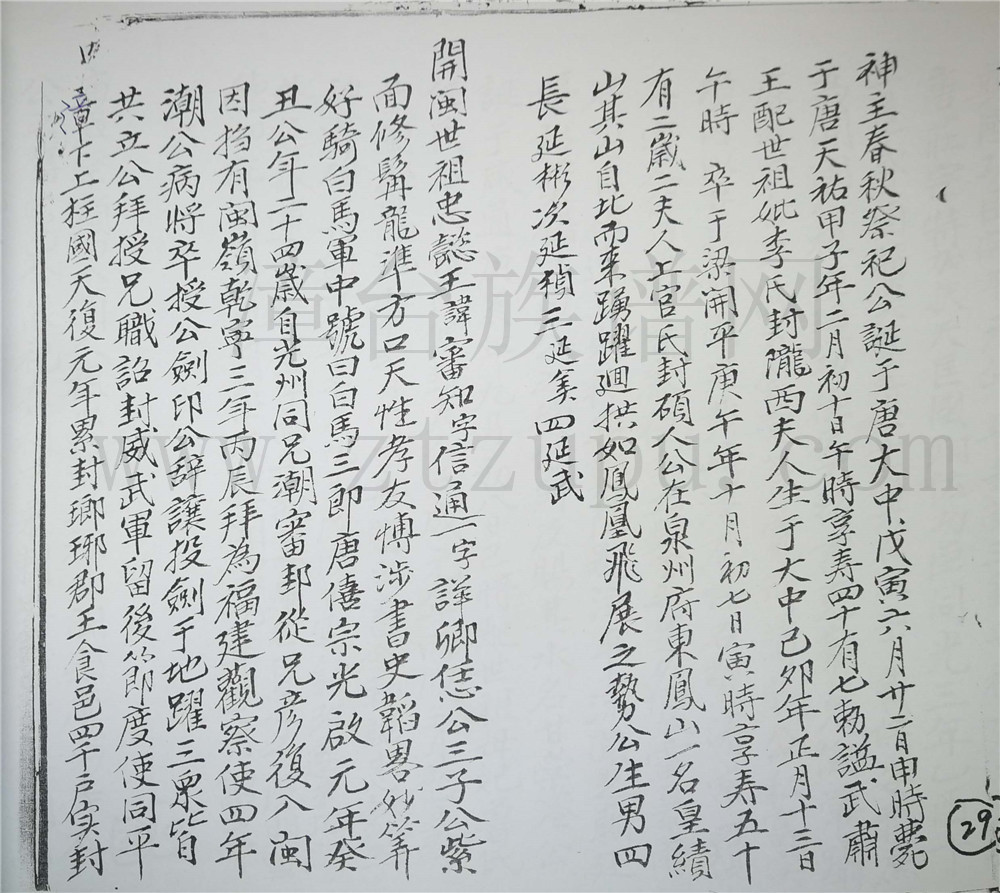 神主春秋祭祀公誕于唐大中戊寅六月廿二日申時薨
于唐天祐甲子年二月初十日午時享寿四十有七勅謚武肅
王配世祖妣李氏封隴西夫人生于大中己夘年正月十三日
午時 卒于梁開平庚午年十月初七日寅時享寿五十
有二歲二夫人上官氏封碩人公在泉州府東鳳山一名皇績
山其山自北而来踴躍廻拱如鳳凰飛展之勢公生男四
長延彬次延禎三延羙四延武
開閩世祖忠懿王諱審知字信通一字詳卿恁公三子公紫
面修髯龍準方口天性孝友愽涉書史韜畧妙筭
好騎白馬軍中號曰白馬三郎唐僖宗光啟元年癸
丑公年二十四歲自光州同兄潮審邽從兄彦復入閩
因挡有閩嶺乾寧三年丙辰拜為福建觀察使四年
潮公病将卒授公劍印公辭讓投劍于地躍三衆皆
共立公拜授兄職詔封威武軍留後節度使同平
章下上柱國天復元年累封瑯琊郡王食邑四千戶实封
29
漳台族谱网
www.ztzupu.com